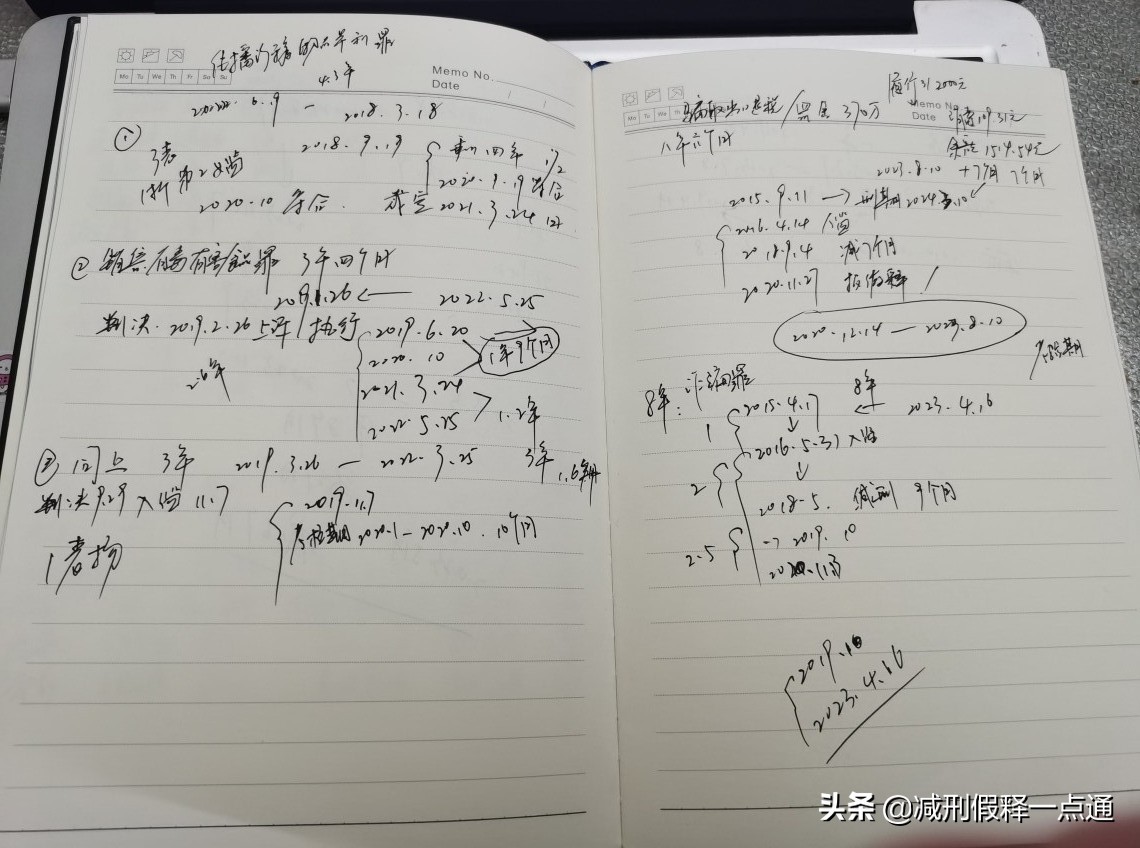 传播淫秽物品牟利罪
4.3年
Mo Tu We Th Fr Sa Su
Memo No.
Date
6.19 — 2018.3.18
① 2018.9.19
四年 1/2
2020.9.19 符合
2020.10 符合. 裁定 2021.3.24
② 销售有毒有害食品罪 3年四个月
2022.5.25
判决.2019.2.26 上诉/执行
2019.6.20
2020.10
1年9个月
2.6年
2021.3.24
2022.5.25
1.2年
③ 同上 3年 2019.3.26 — 2022.3.25 3年
判决9.29 入监 11.7
2019.11.7
考核期 2020.1—2020.10. 10个月
1表扬
履行 2000元
骗取出口退税/罚金 370万
Memo No
Date
八年六个月
2023.8.10
2015.9.11 → 刑期 2024
2016.4.14 入监
2018.9.4 减7个月
2020.11.27 报假释
2020.12.14 — 2023.8.10
考验期
8年: 诈骗罪
8年
1 2015.4.17 ← 2023.4.16
2016.5.31 入监
2 2018.5. 减刑 9个月
2.5 → 2019.10
2019.10
2023.4.16
头条 @减刑假释一点通